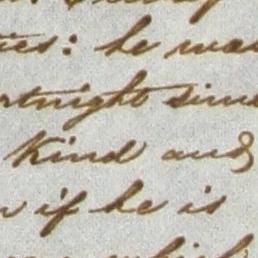 ties: he was
rtnight since
Kind and
if he is
which